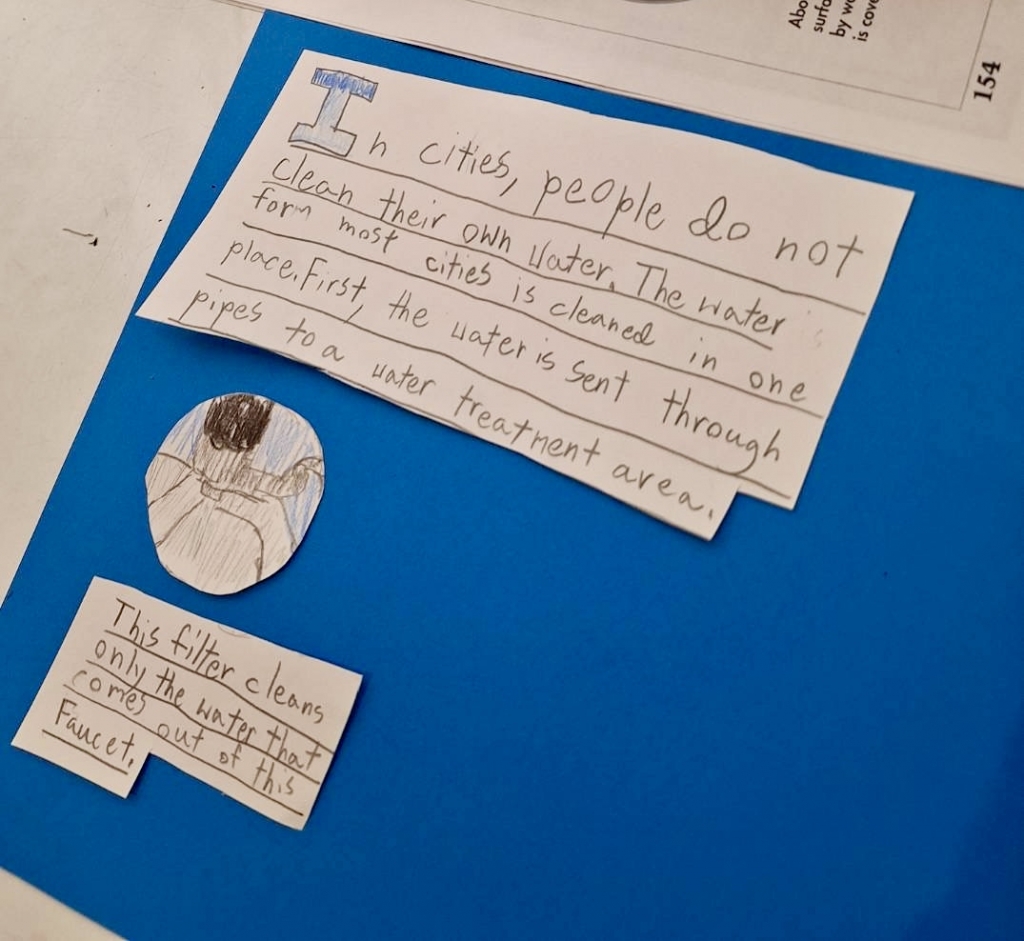 Abo
surfa
by wa
is cove
154
In cities, people do not
clean their own water. The water
form most cities is cleaned in one
place. First, the water is sent through
pipes to a water treatment area.
This filter cleans
only the water that
comes out of this
Faucet.